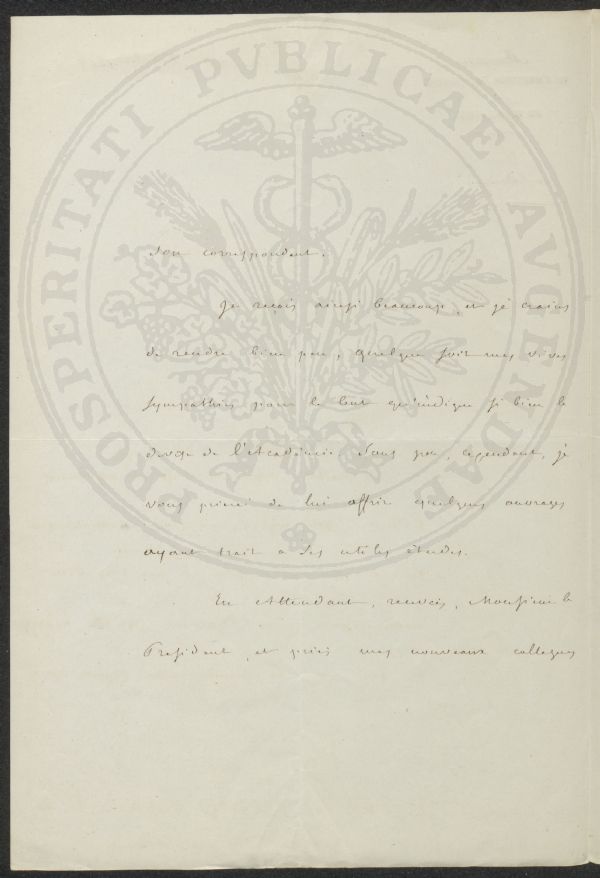 PROSPERITATI PVBLICAE AVGENDAE
son correspondant.
Je reçois ainsi beaucoup, et je crains
de rendre bien peu, quelque soit mes vives
sympathies pour le but qu'indique si bien le
de l'Académie. Sous peu, cependant, je
vous prierai de lui offrir quelques ouvrages
ayant trait a ses utiles études.
En attendant, recevez, Monsieur le
President, et priez mes nouveaux collegues